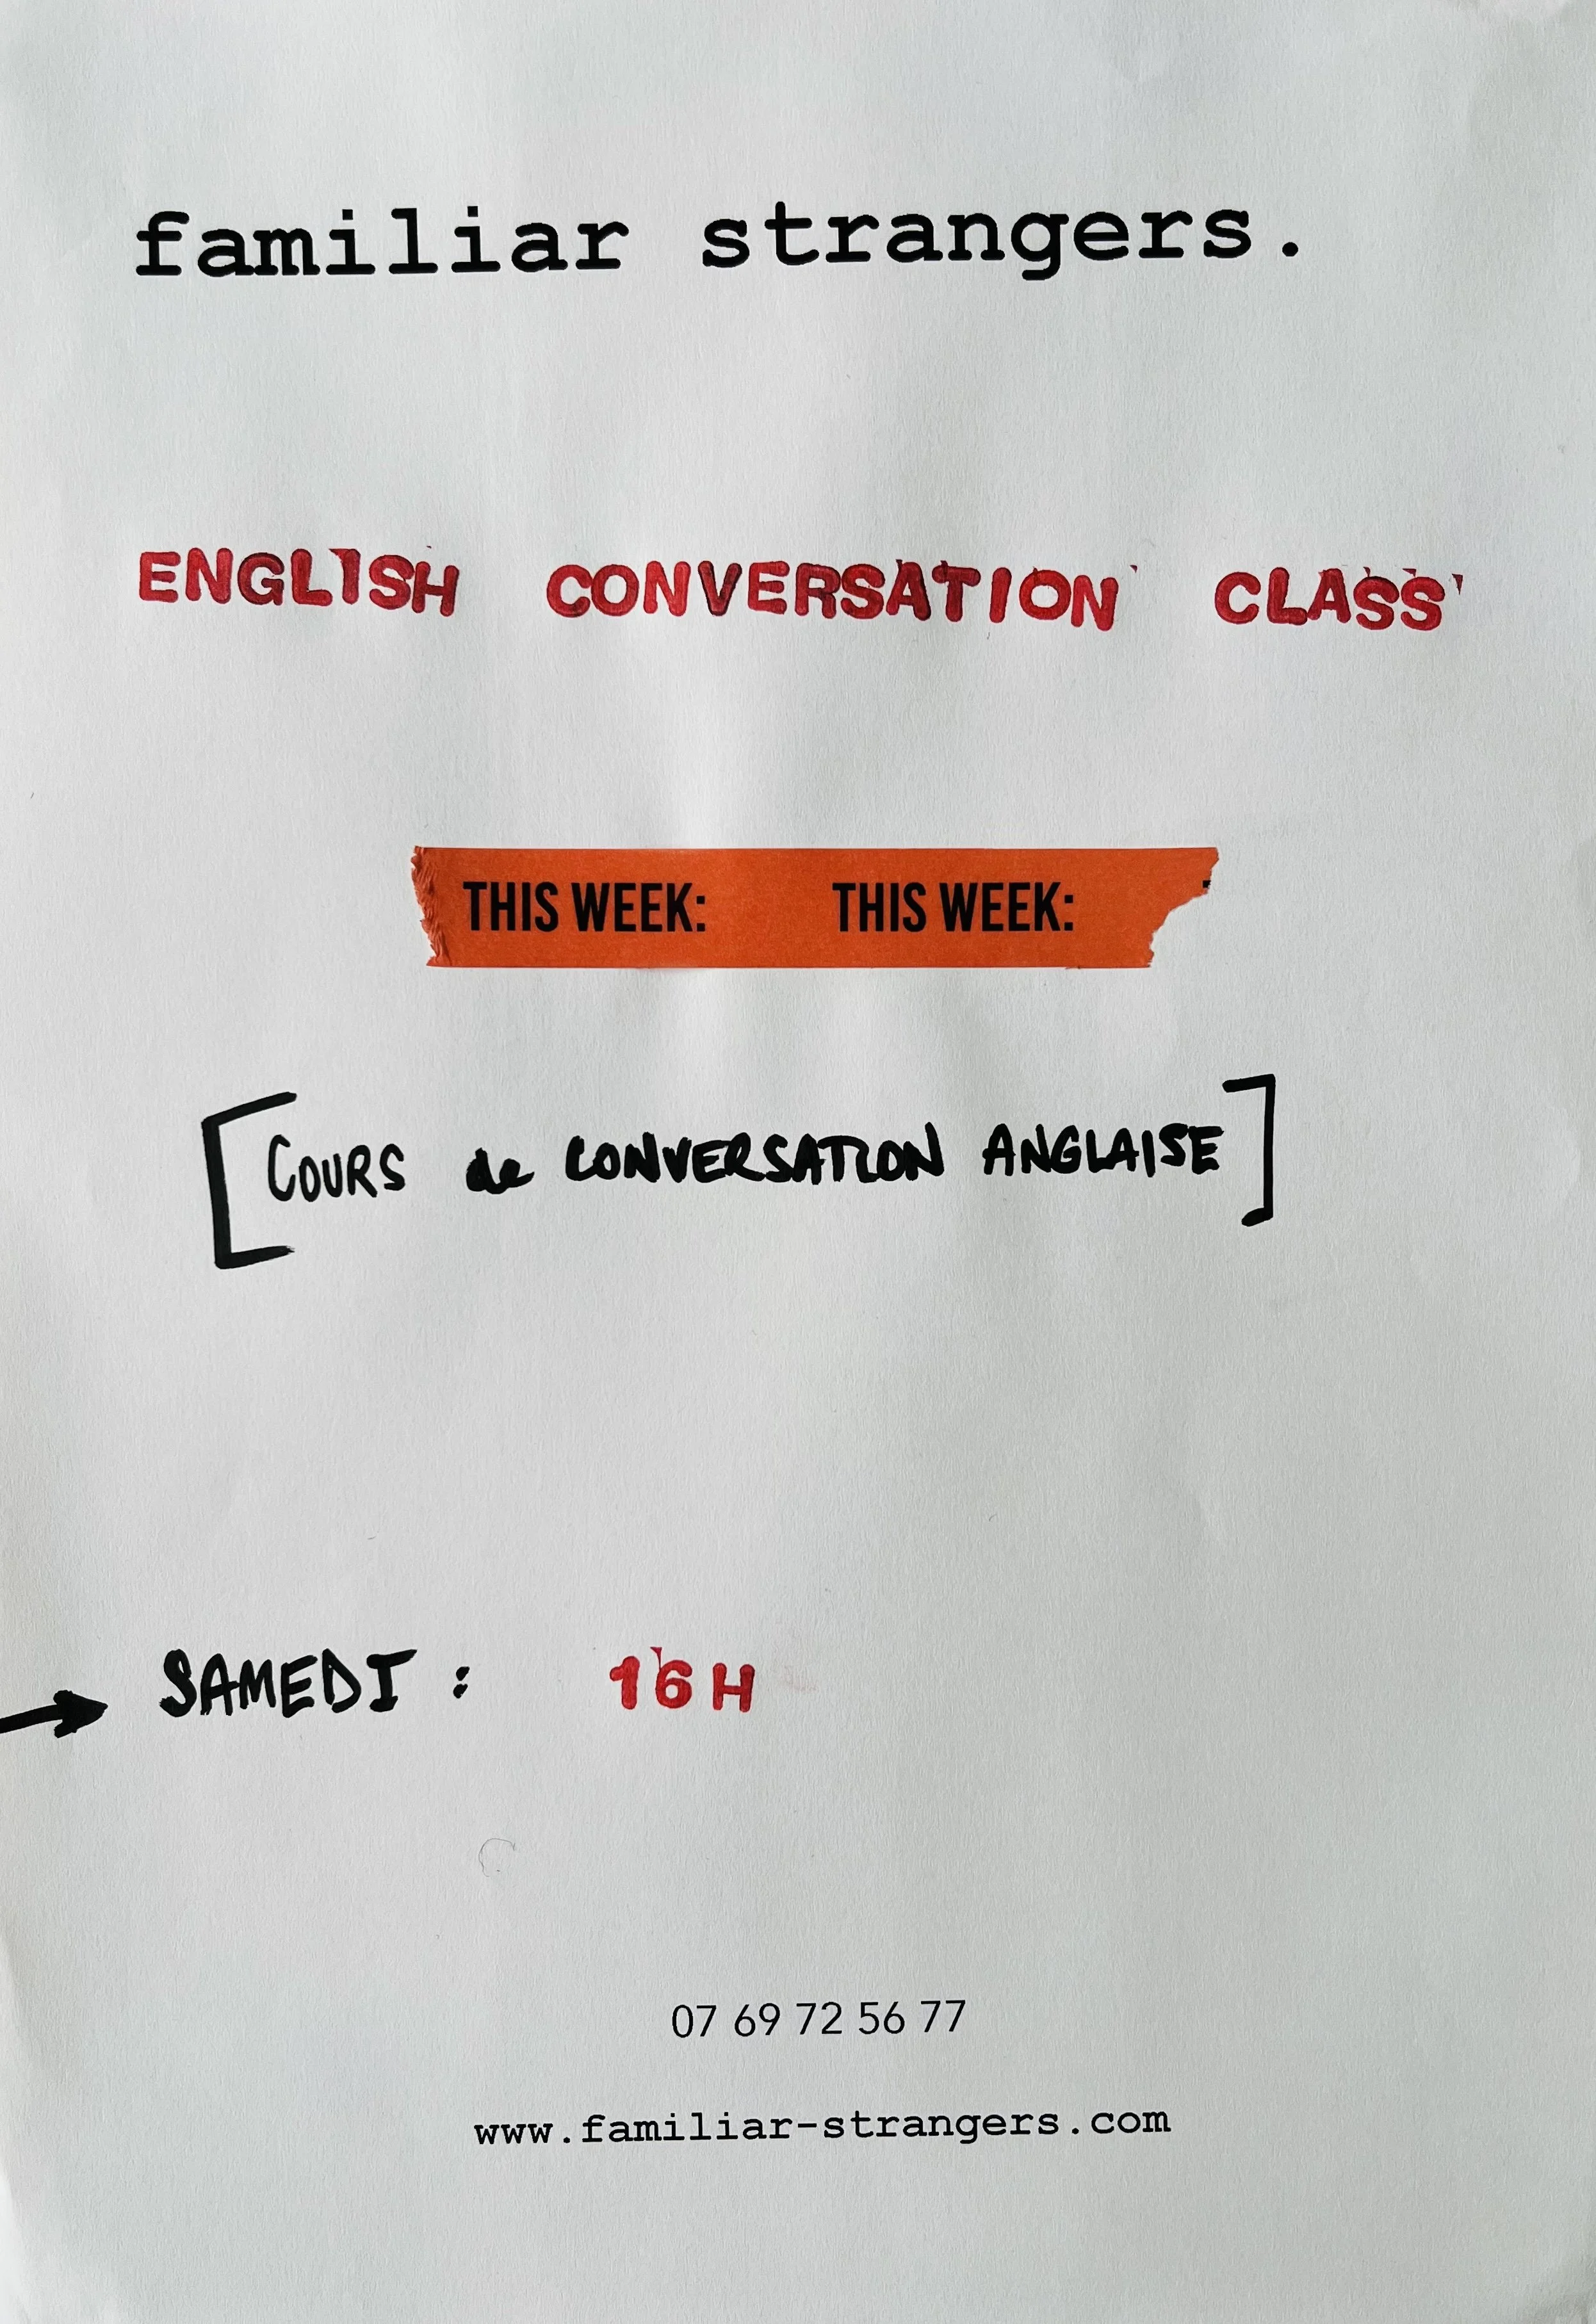 familiar strangers.
ENGLISH CONVERSATION CLASS
THIS WEEK: THIS WEEK:
[COURS de CONVERSATION ANGLAISE]
→ SAMEDI : 16H
07 69 72 56 77
www.familiar-strangers.com